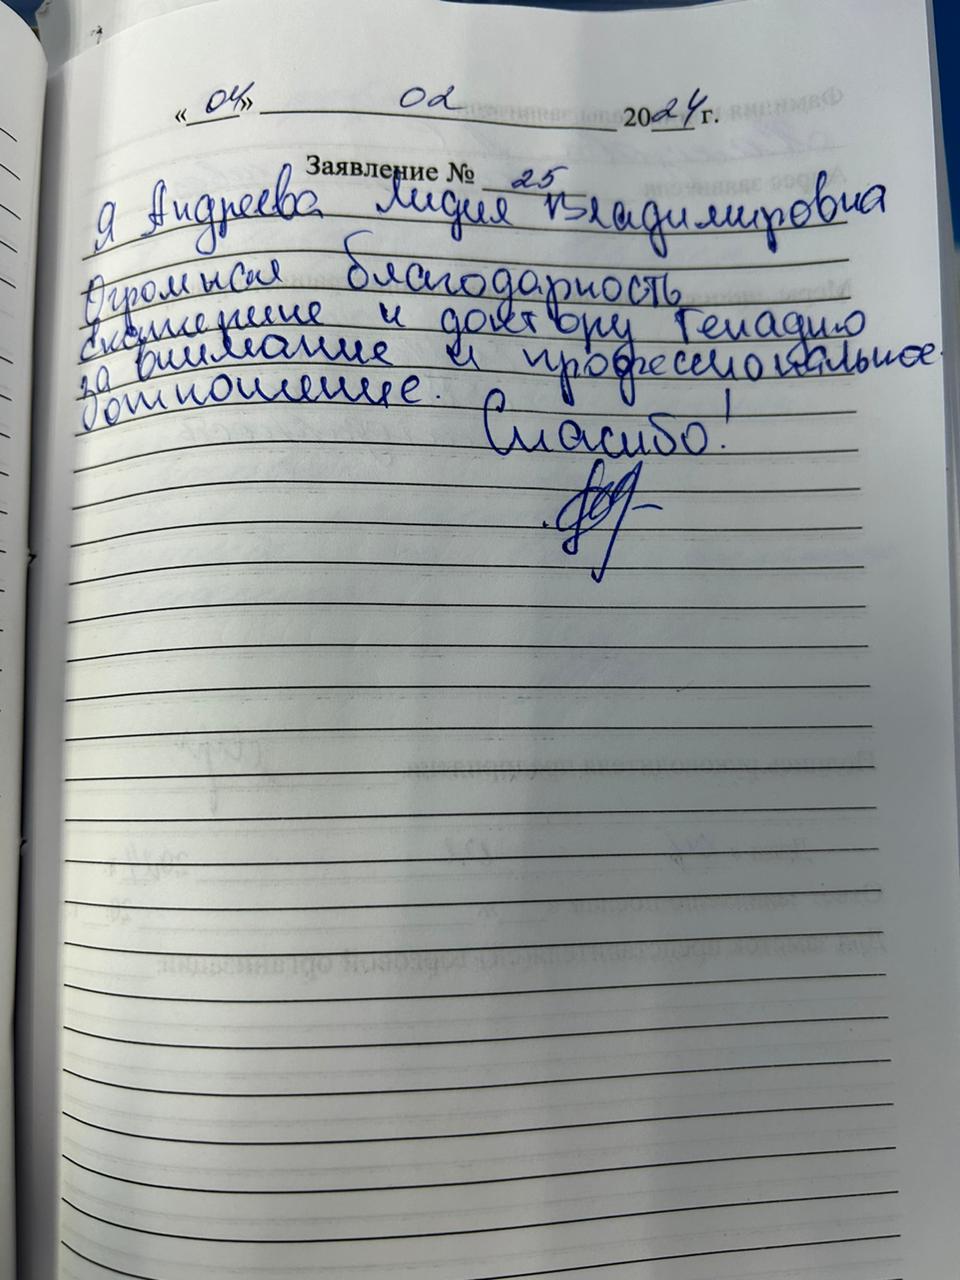 «04» 02 2024 г.
Заявление № 25
Я Андреева Лидия Владимировна
Огромная благодарность
Екатерине и доктору Генадию
за внимание и профессиональное
отношение.
Спасибо!